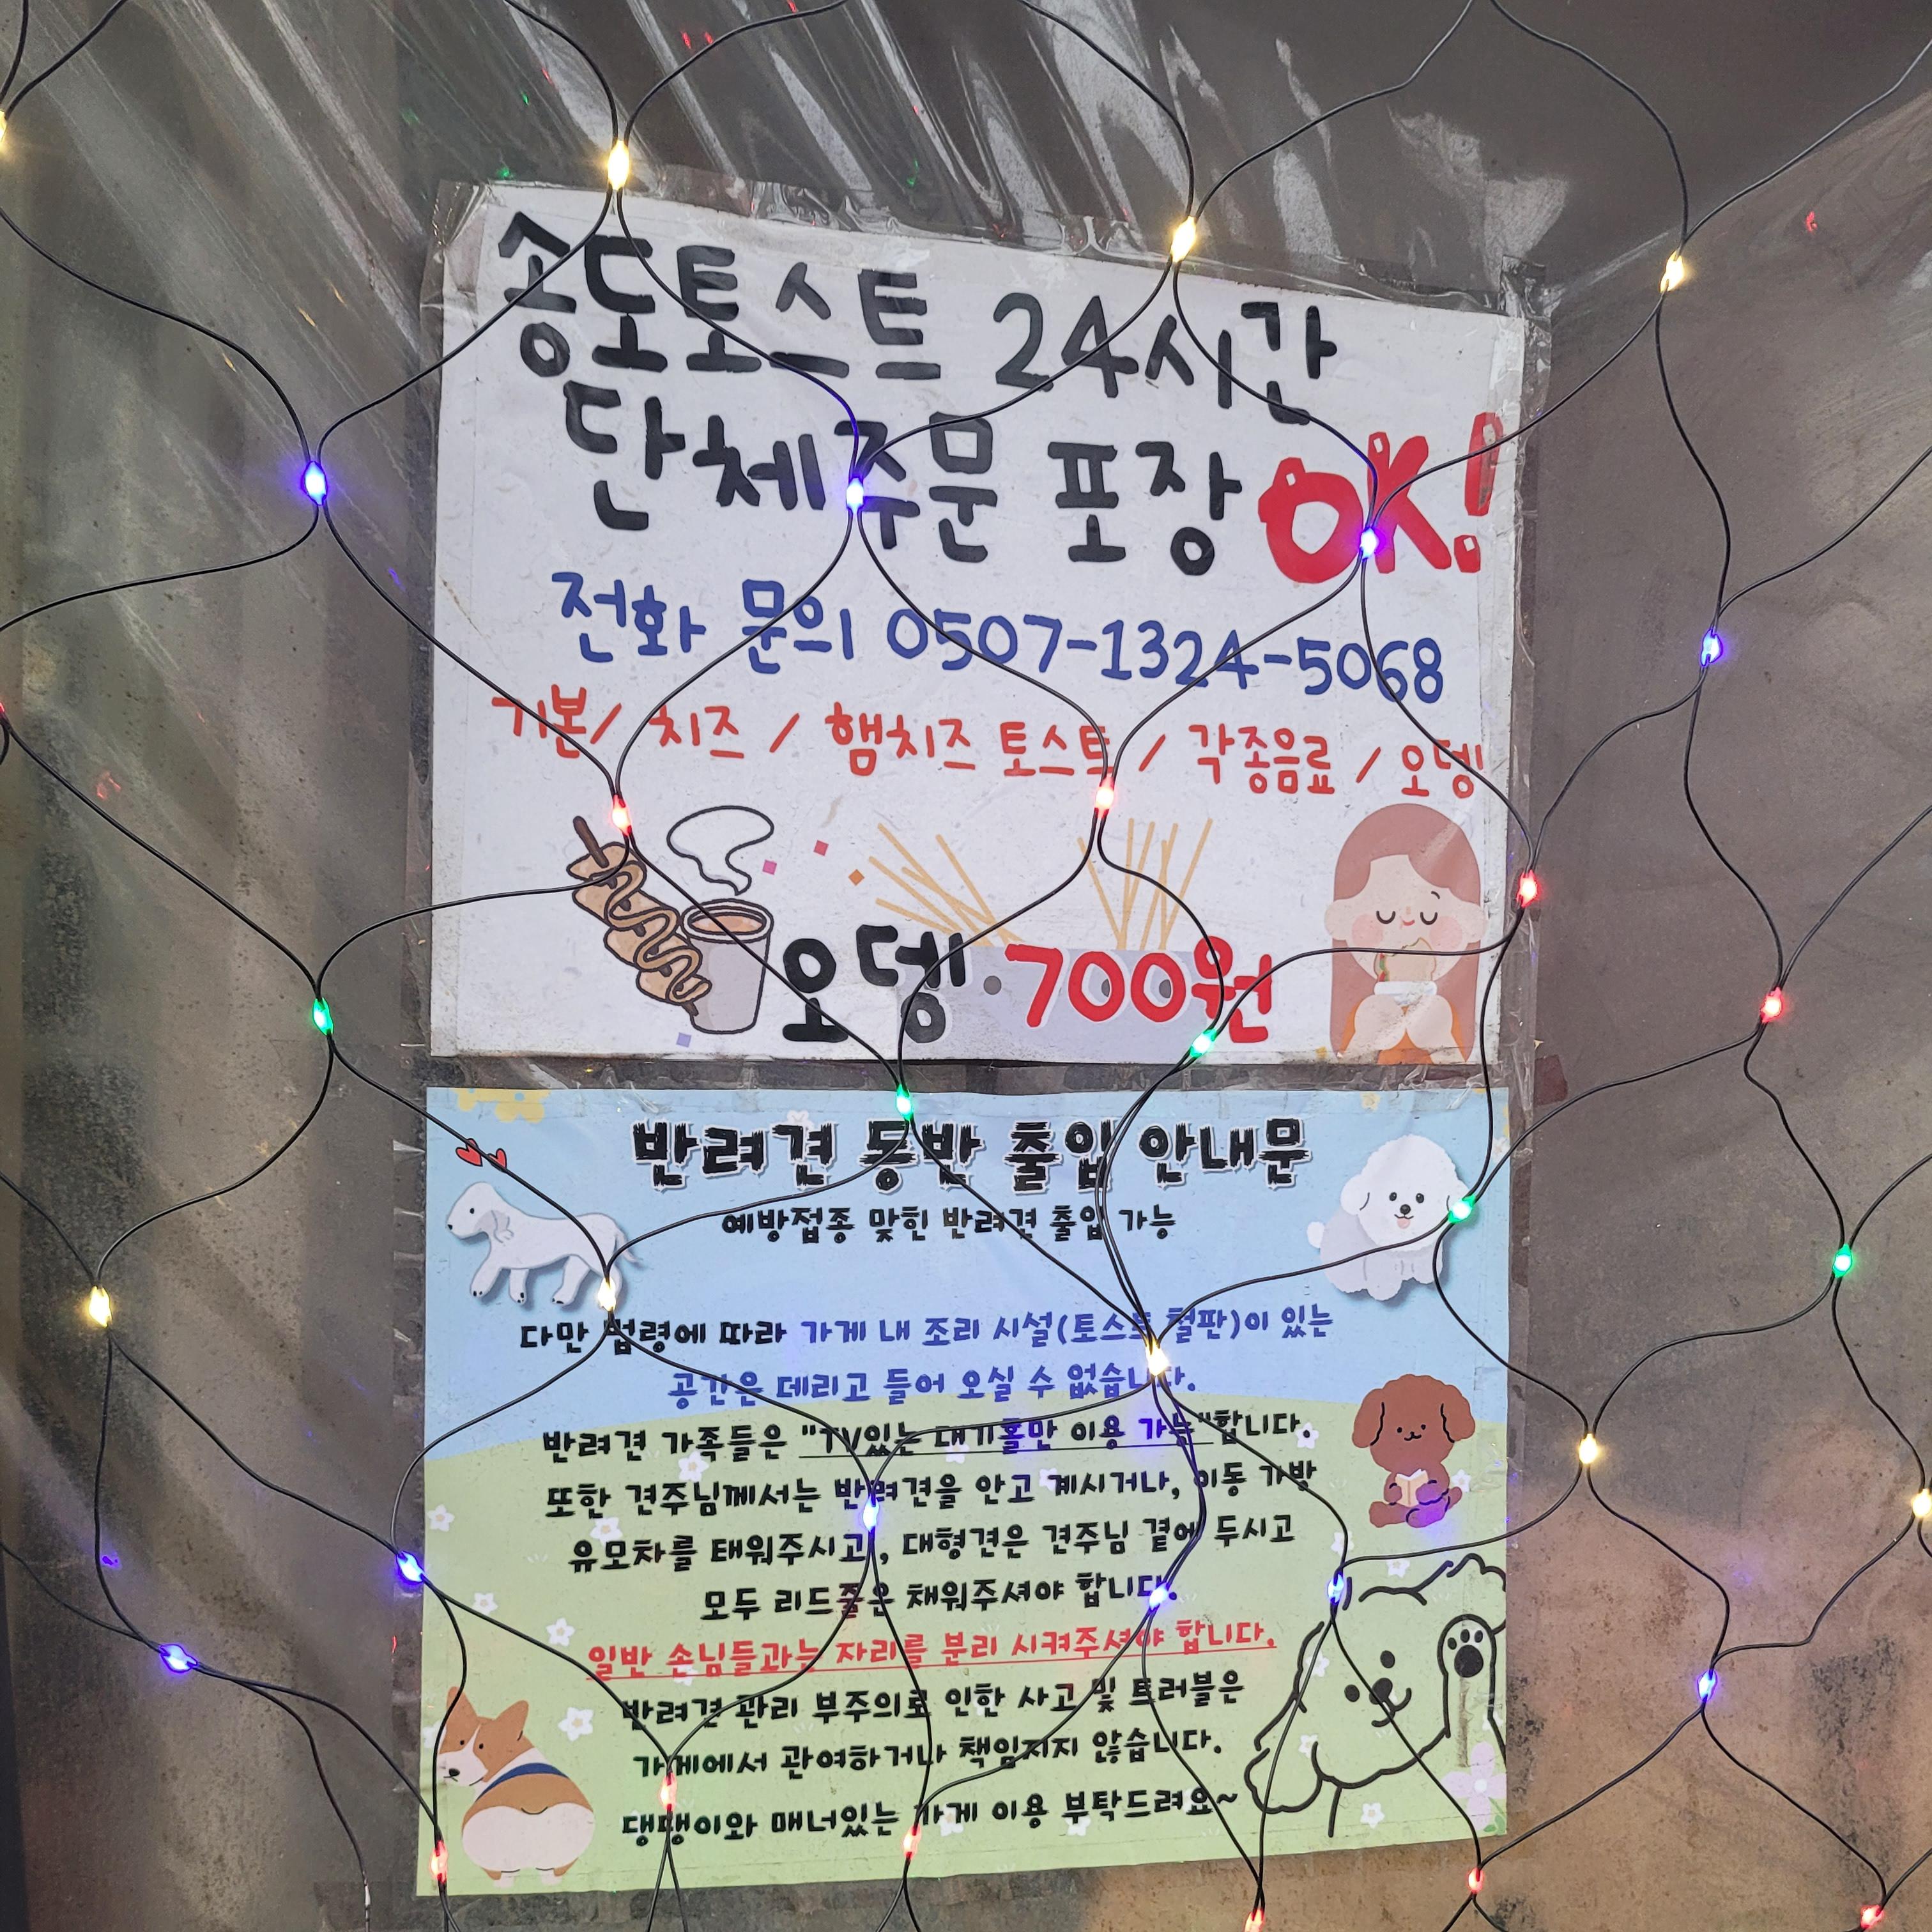 송도토스트 24시간
단체주문 포장 OK!
전화 문의 0507-1324-5068
기본/ 치즈 / 햄치즈 토스트 / 각종음료 / 오뎅
오뎅 700원
반려견 동반 출입 안내문
예방접종 맞힌 반려견 출입 가능
다만 법령에 따라 가게 내 조리 시설(토스트 철판)이 있는
공간은 데리고 들어 오실 수 없습니다.
반려견 가족들은 "TV있는 대기홀만 이용 가능"합니다.
또한 견주님께서는 반려견을 안고 계시거나, 이동 가방
유모차를 태워주시고, 대형견은 견주님 곁에 두시고
모두 리드줄은 채워주셔야 합니다.
일반 손님들과는 자리를 분리 시켜주셔야 합니다.
반려견 관리 부주의로 인한 사고 및 트러블은
가게에서 관여하거나 책임지지 않습니다.
댕댕이와 매너있는 가게 이용 부탁드려요~